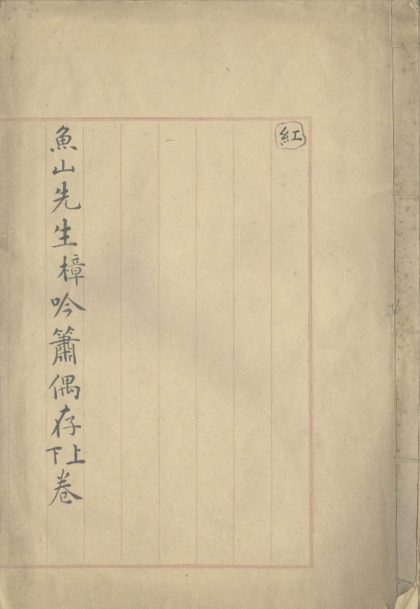 紅
魚山先生樟吟簫偶存上下卷